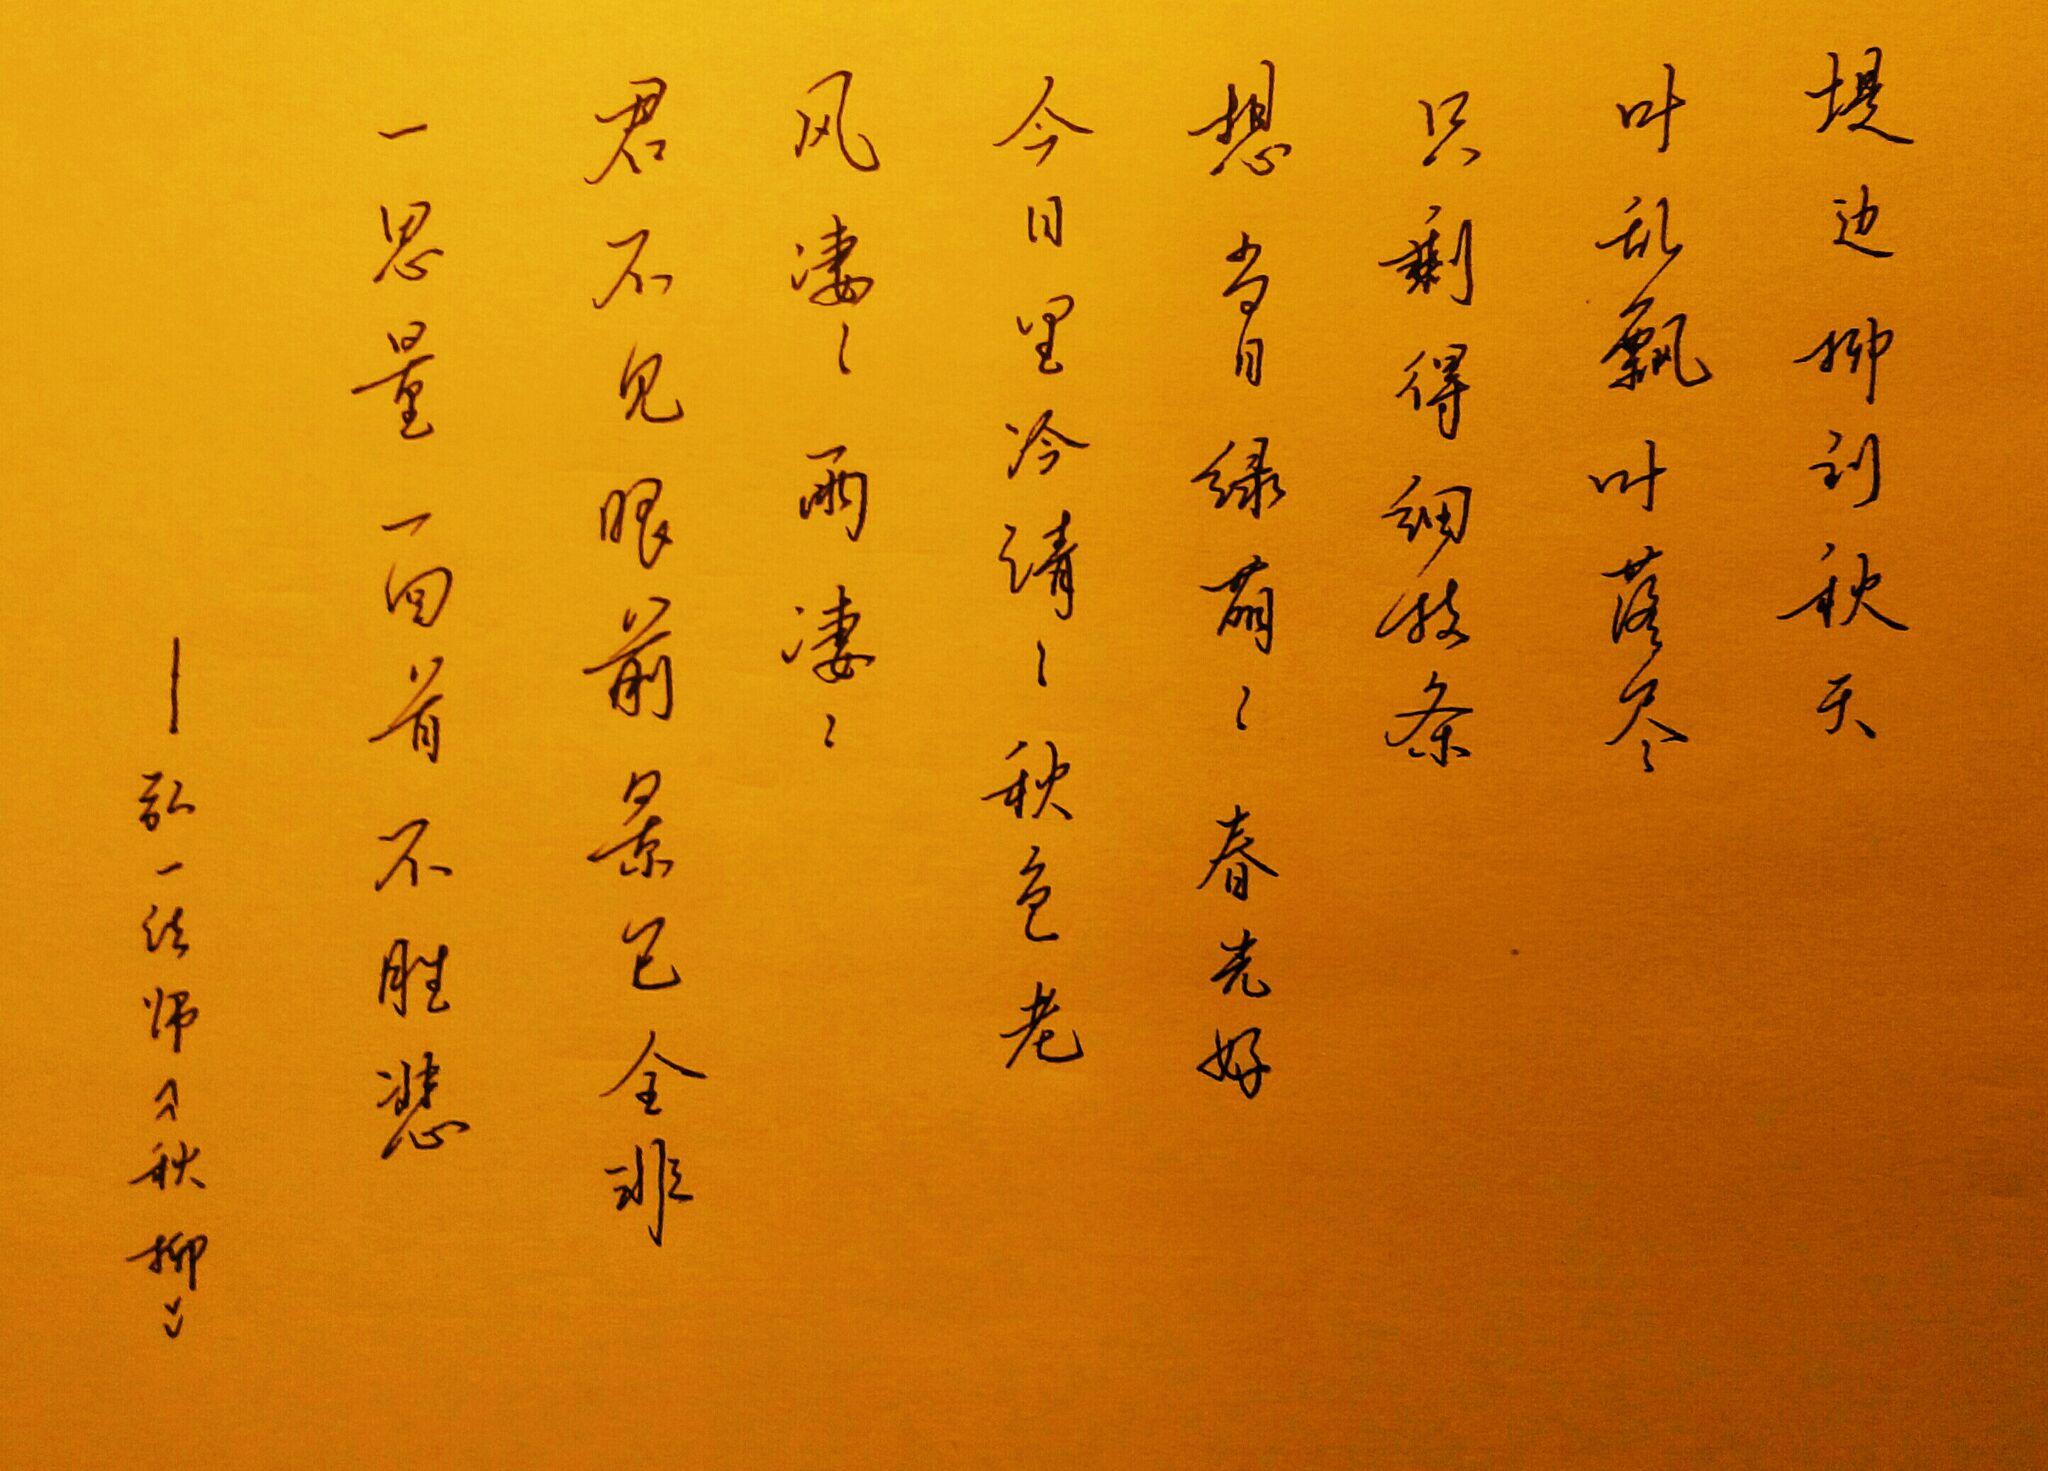 堤边柳到秋天
叶乱飘叶落尽
只剩得细枝条
想当日绿荫〻春光好
今日里冷清〻秋色老
风凄〻雨凄〻
君不见眼前景已全非
一思量一回首不胜悲
——弘一法师《秋柳》